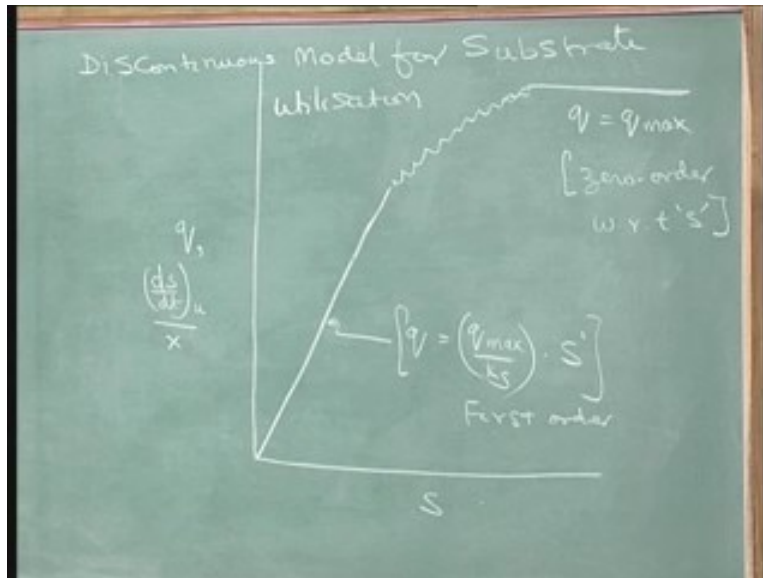 Discontinuous Model for Substrate
utilisation
q = qmax
[zero-order
w.r.t 's']
q,
(ds/dt)u
x
[q = (qmax/ks) . S]
First order
S